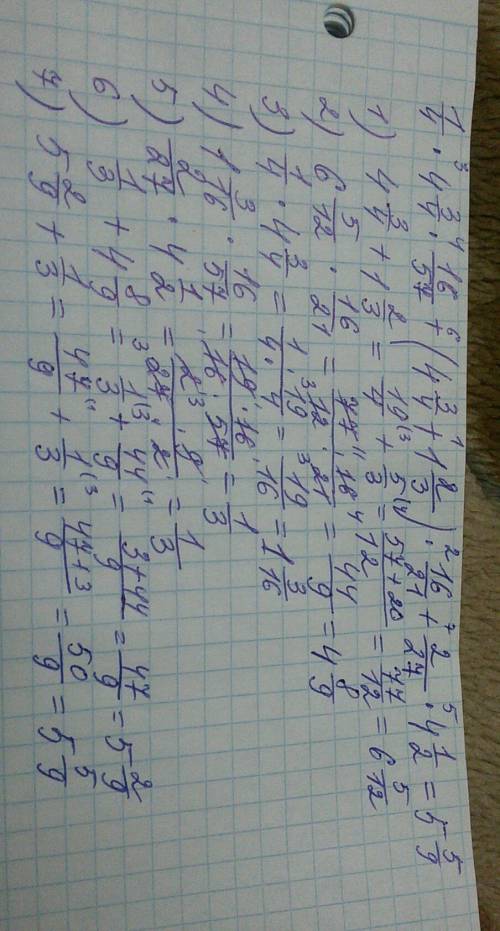 1/4 ·³ 4 3/4 ·⁴ 16/57 +⁶ (4 3/4 +¹ 1 2/3) ·² 16/21 +⁷ 2/27 ·⁵ 4 1/2 = 5 5/9
1) 4 3/4 + 1 2/3 = 19/4⁽³ + 5/3⁽⁴ = (57+20)/12 = 77/12 = 6 5/12
2) 6 5/12 · 16/21 = (77¹¹ · 16⁴)/(³12 · 21³) = 44/9 = 4 8/9
3) 1/4 · 4 3/4 = (1 · 19)/(4 · 4) = 19/16 = 1 3/16
4) 1 3/16 · 16/57 = (19¹ · 16¹)/(¹16 · 57₃) = 1/3
5) 2/27 · 4 1/2 = (2¹ · 9¹)/(³27 · 2¹) = 1/3
6) 1/3 + 4 8/9 = 1/3⁽³ + 44/9⁽¹ = (3+44)/9 = 47/9 = 5 2/9
7) 5 2/9 + 1/3 = 47/9⁽¹ + 1/3⁽³ = (47+3)/9 = 50/9 = 5 5/9